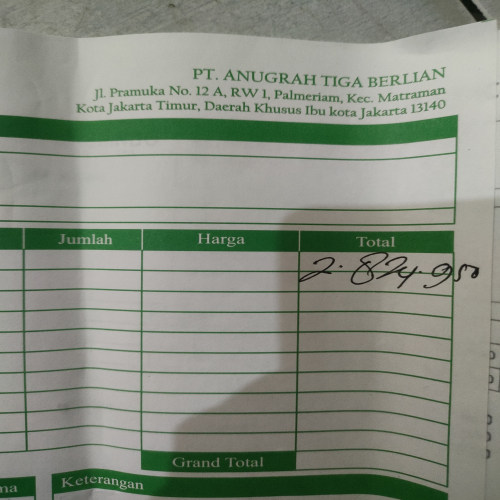 PT. ANUGRAH TIGA BERLIAN
Jl. Pramuka No. 12 A, RW 1, Palmeriam, Kec. Matraman
Kota Jakarta Timur, Daerah Khusus Ibu kota Jakarta 13140
Jumlah Harga Total
2.824.950
Grand Total
na Keterangan